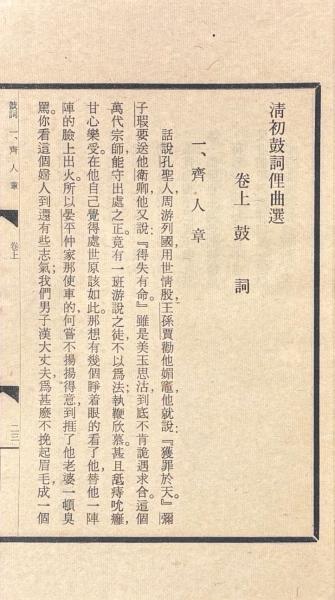 清初鼓詞俚曲選
卷上 鼓詞
一、齊人章
話說孔聖人周游列國,用世情殷,王孫賈勸他媚竈,他就說:『獲罪於天。』彌
子瑕要送他衛卿,他又說:『得失有命。』雖是美玉思沽,到底不肯詭遇求合。這個
萬代宗師,能守出處之正。竟有一班游說之徒,不以爲法;執鞭欣慕。甚且舐痔吮癰,
甘心樂受。在他自己覺得處世原該如此。那想有幾個睜着眼的看了他,替他一陣
陣的臉上出火。所以晏平仲家那使車的,何嘗不揚揚得意,到捱了他老婆一頓臭
罵。你看這個婦人到還有些志氣;我們男子漢大丈夫,爲甚麽不挽起眉毛,成一個
鼓詞 一、齊人章 卷上 二三